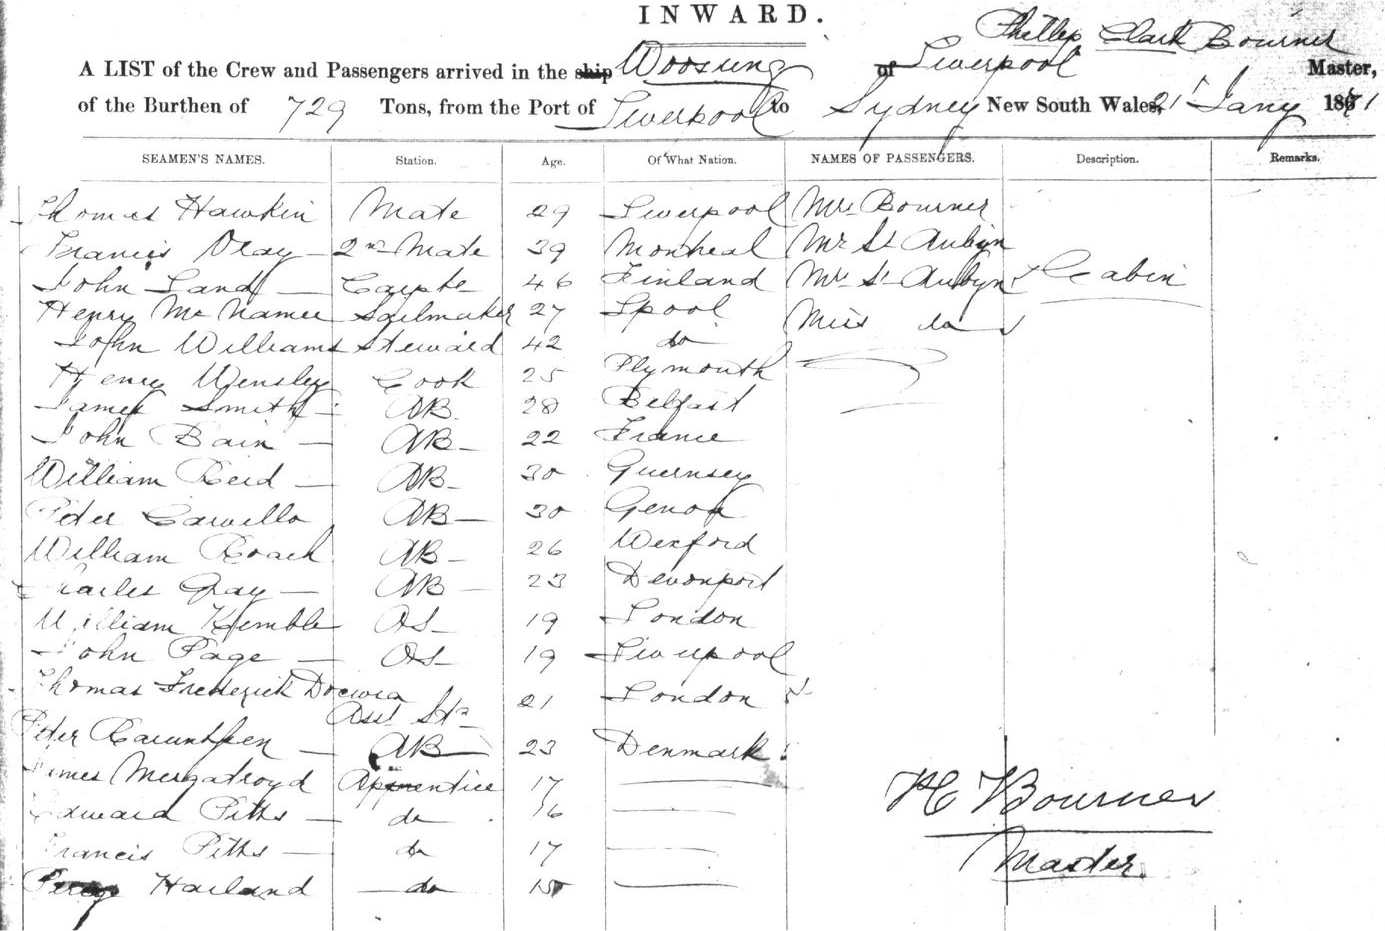 INWARD.
Phillip Clark Bourner
A LIST of the Crew and Passengers arrived in the ship Woosung of Liverpool Master,
of the Burthen of 729 Tons, from the Port of Liverpool to Sydney New South Wales, 21st Jany 1871
SEAMEN'S NAMES. Station. Age. Of What Nation. NAMES OF PASSENGERS. Description. Remarks.
Thomas Hawkin Mate 29 Liverpool Mrs Bourner
Francis 2nd Mate 39 Montreal Mr St Aubyn
John Land Carpte 46 Finland Mrs St Aubyn Cabin
Henry McNamee Sailmaker 27 Lpool Miss do
John Williams Steward 42 do
Henry Wensley Cook 25 Plymouth
James Smith AB 28 Belfast
John Bain AB 22 France
William Reid AB 30 Guernsey
Peter Carvello AB 30 Genoa
William Roach AB 26 Wexford
Charles Gray AB 23 Devonport
William Kemble OS 19 London
John Page OS 19 Liverpool
Thomas Frederick Docwra
Asst Std 21 London
Peter AB 23 Denmark
James Mergatroyd Apprentice 17
Edward Pitts do 16
Francis Pitts do 17
Percy Harland do 15
PC Bourner
Master